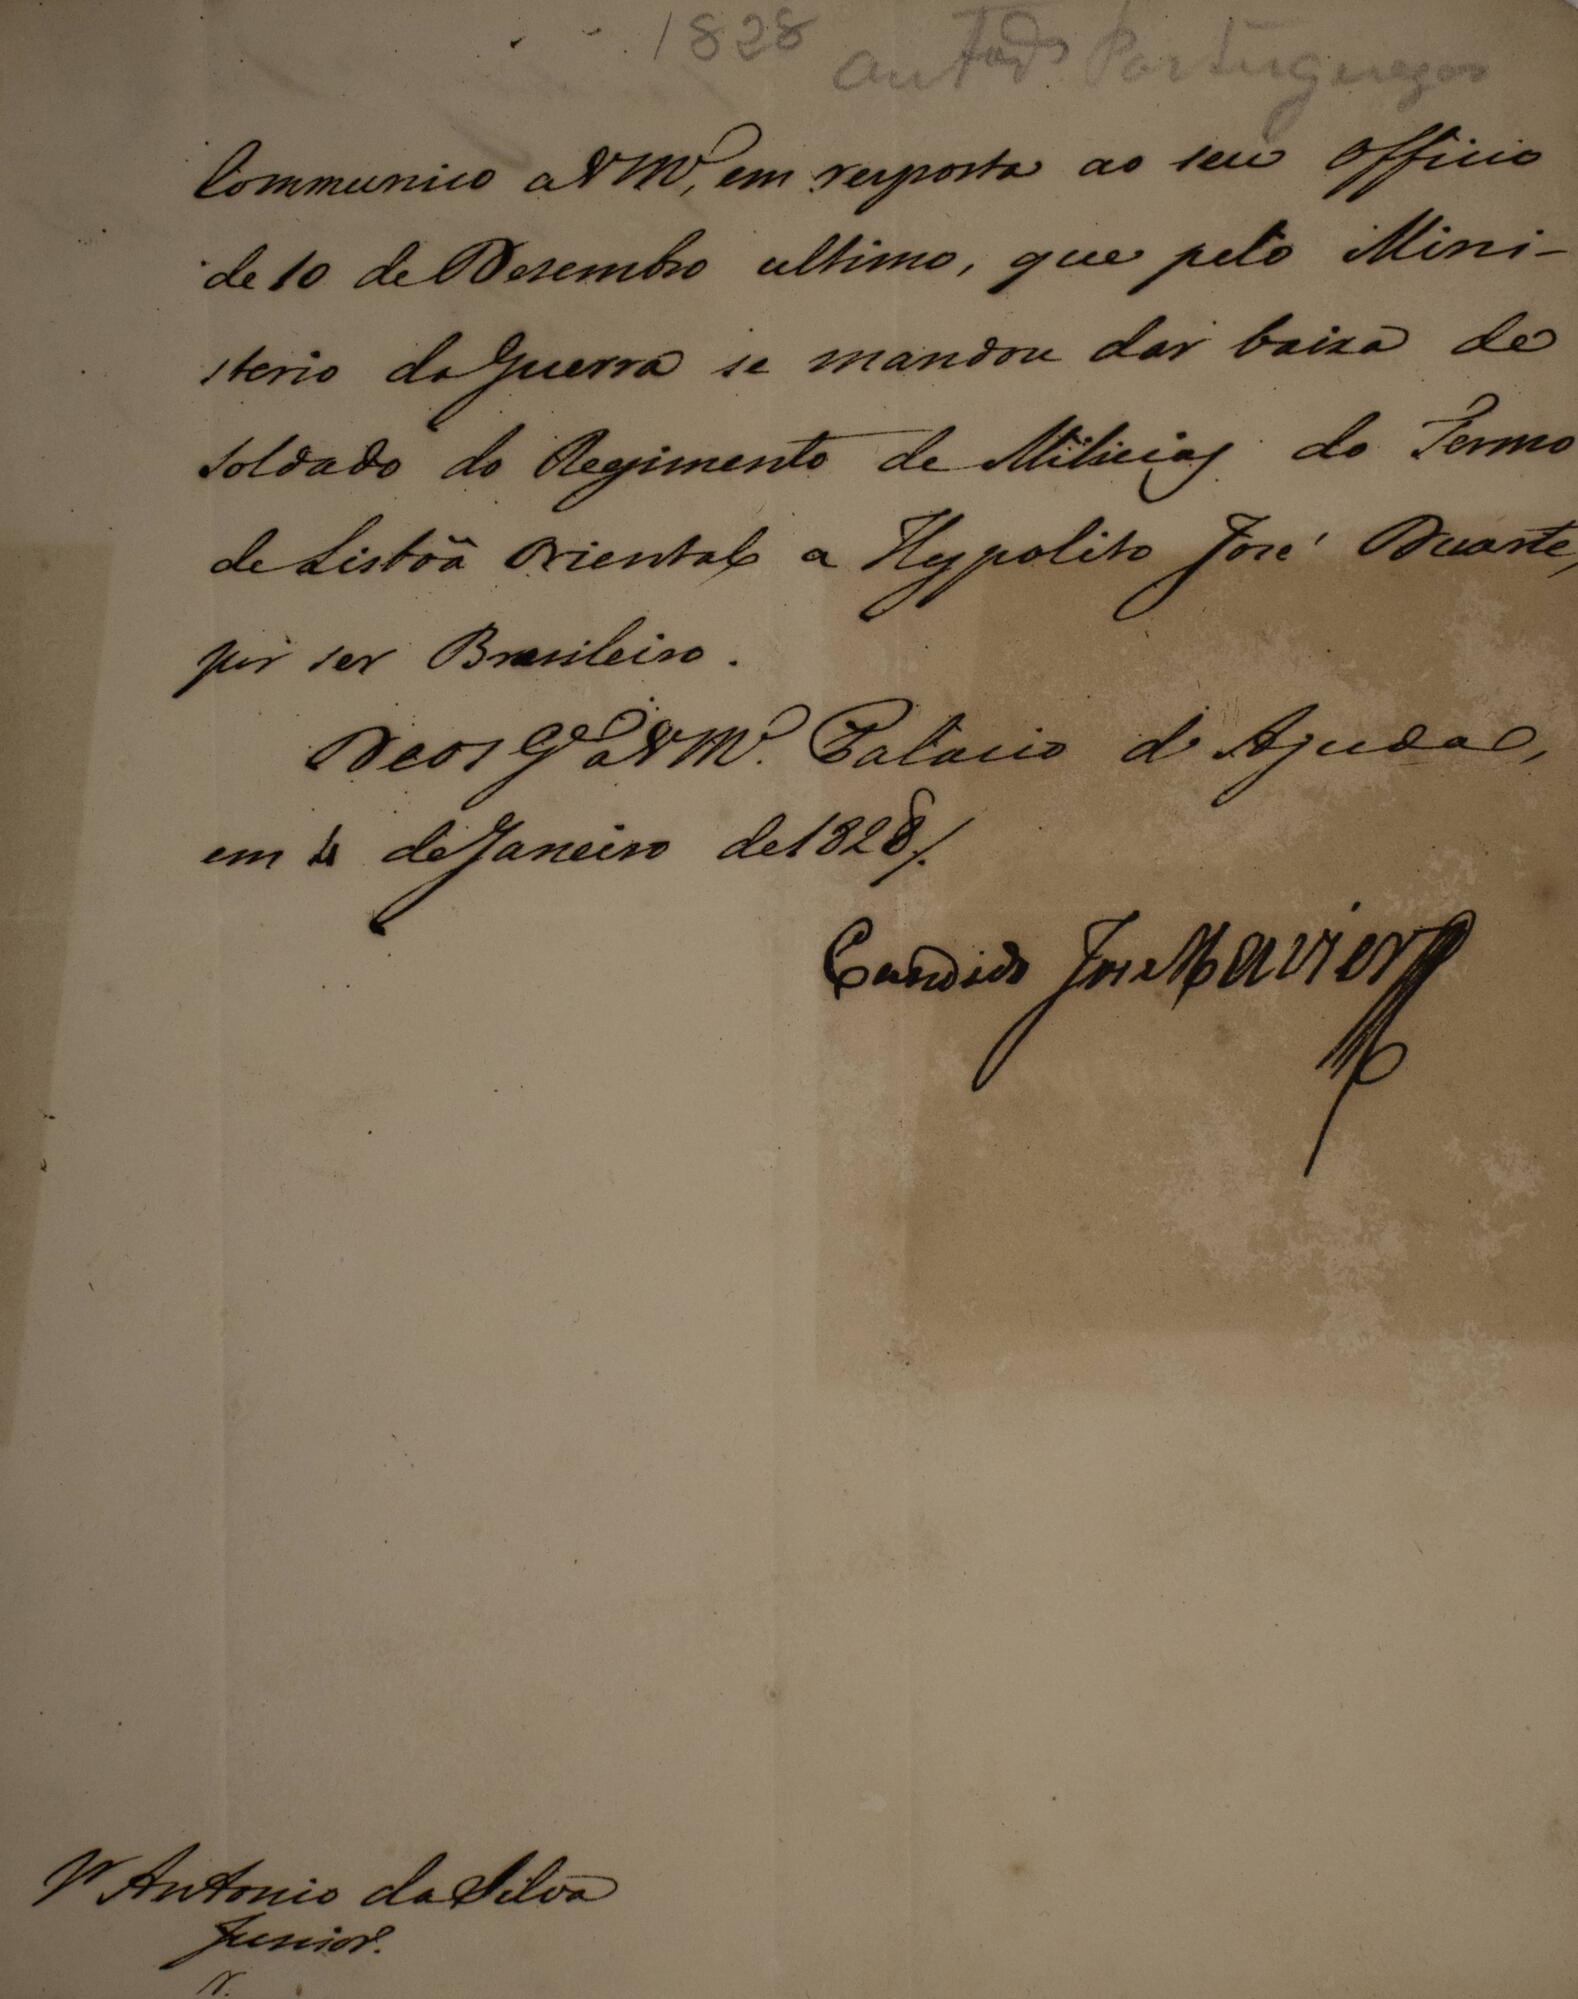 1828 Autods Portuguezas
Communico a V M.ce, em resposta ao seu Officio
de 10 de Dezembro ultimo, que pelo Mini-
sterio da Guerra se mandou dar baixa de
Soldado do Regimento de Milicias do Termo
de Lisbôa Oriental a Hypolito José Duarte,
por ser Brasileiro.
Deos G.e a V M.ce Palacio d'Ajuda,
em 4 de Janeiro de 1828/.
Candido José Xavier
Antonio da Silva
Junior.